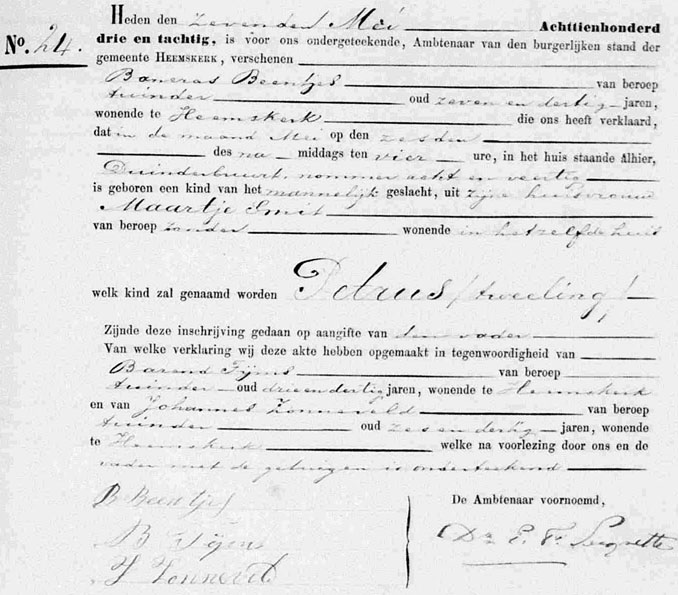 Heden den zevenden Mei Achttienhonderd
No. 24. drie en tachtig, is voor ons ondergeteekende, Ambtenaar van den burgerlijken stand der
gemeente HEEMSKERK, verschenen
Bancras Beentjes van beroep
tuinder oud zeven en dertig jaren,
wonende te Heemskerk die ons heeft verklaard,
dat in de maand Mei op den zesden
des na middags ten vier ure, in het huis staande Alhier,
Duinderbuurt, nommer acht en veertig
is geboren een kind van het mannelijk geslacht, uit zijne huisvrouw
Maartje Smit
van beroep zonder wonende in hetzelfde huis
welk kind zal genaamd worden Petrus (tweeling)
Zijnde deze inschrijving gedaan op aangifte van den vader
Van welke verklaring wij deze akte hebben opgemaakt in tegenwoordigheid van
Barend Tijms van beroep
tuinder oud drieendertig jaren, wonende te Heemskerk
en van Johannes Zonneveld van beroep
tuinder oud zesendertig jaren, wonende
te Heemskerk welke na voorlezing door ons en de
vader met de getuigen is onderteekend
B Beentjes
De Ambtenaar voornoemd,
B Tijms
J Zonneveld